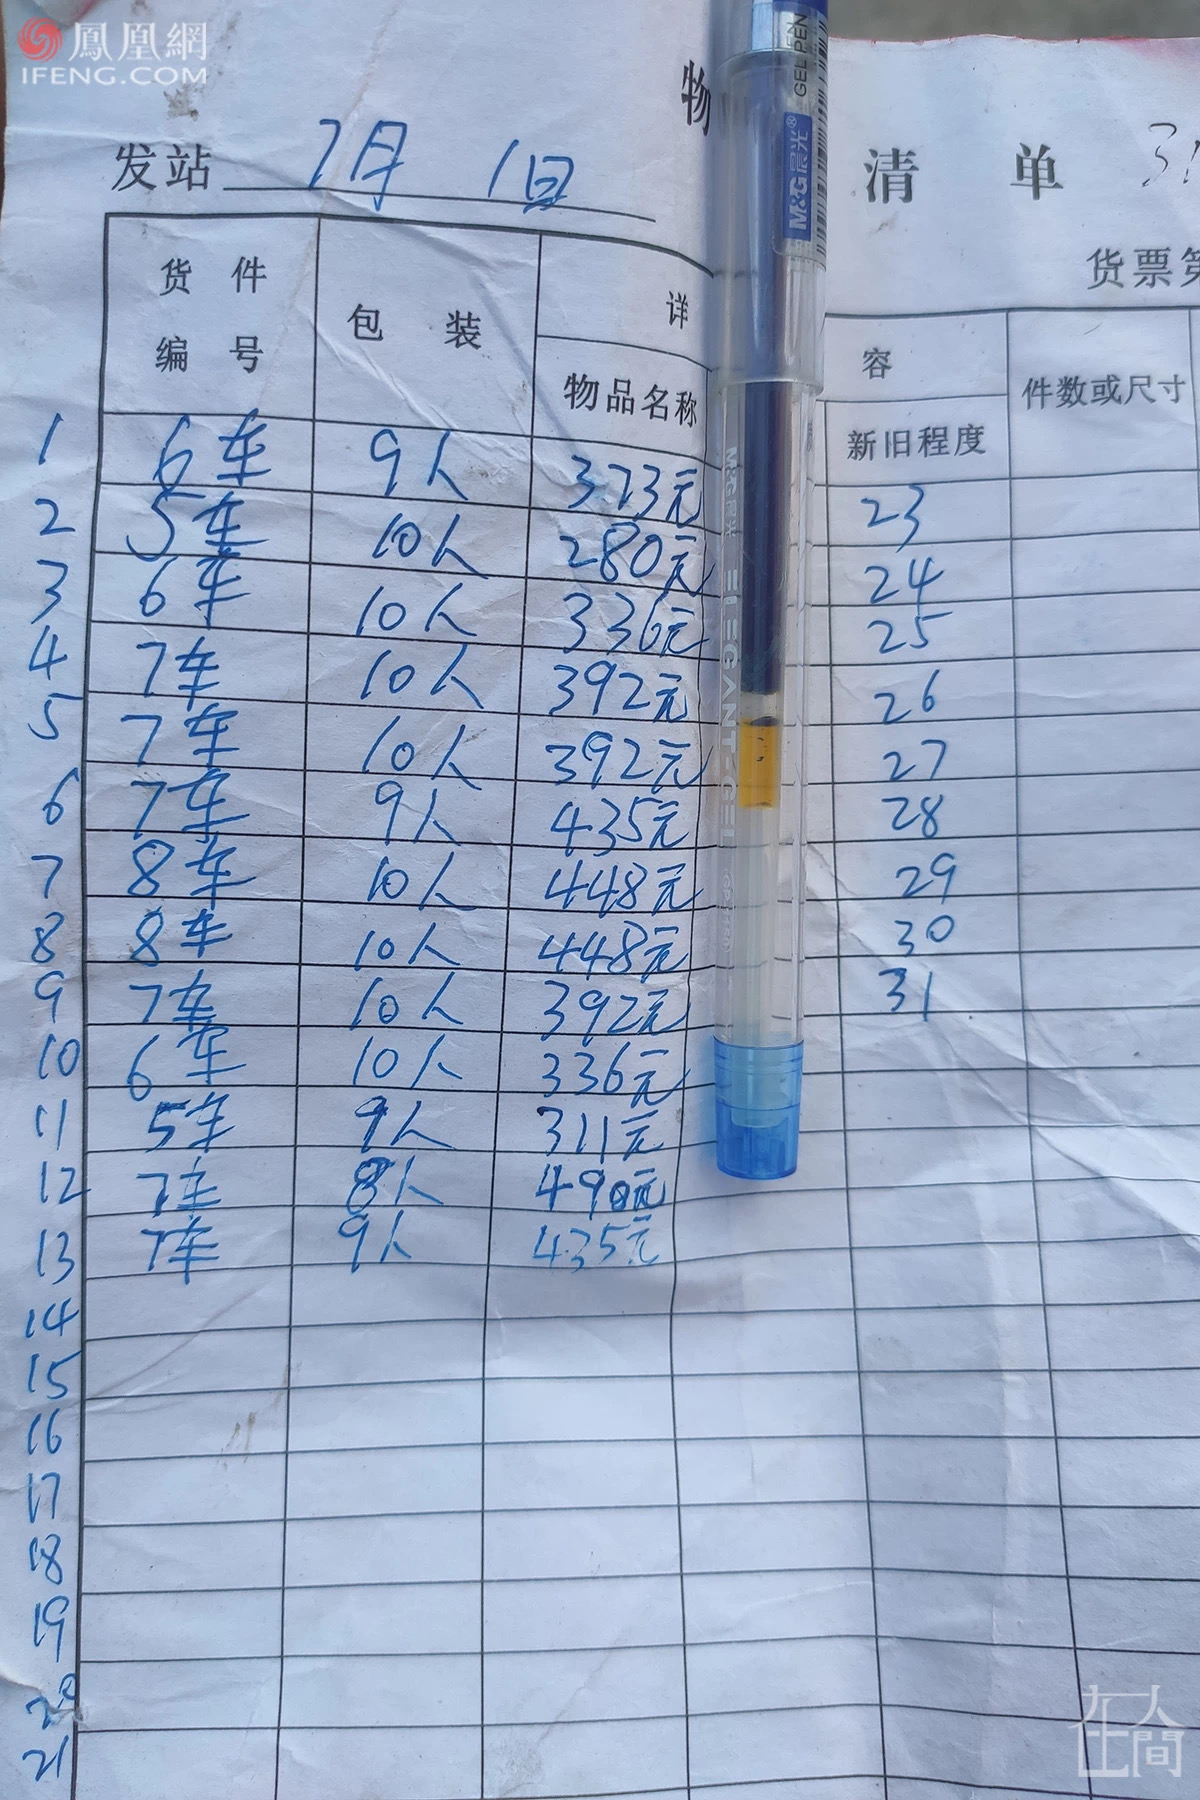 鳳凰網
IFENG.COM
物 清 单
发站 7月 1日
货票第
货件编号 包装 详 容 件数或尺寸
物品名称 新旧程度
1 6车 9人 373元 23
2 5车 10人 280元 24
3 6车 10人 336元 25
4 7车 10人 392元 26
5 7车 10人 392元 27
6 7车 9人 435元 28
7 8车 10人 448元 29
8 8车 10人 448元 30
9 7车 10人 392元 31
10 6车 10人 336元
11 5车 9人 311元
12 7车 8人 490元
13 7车 9人 435元
14
15
16
17
18
19
20
21
GEL PEN
M&G晨光
M&G晨光 ELEGANT-GEL
在人間